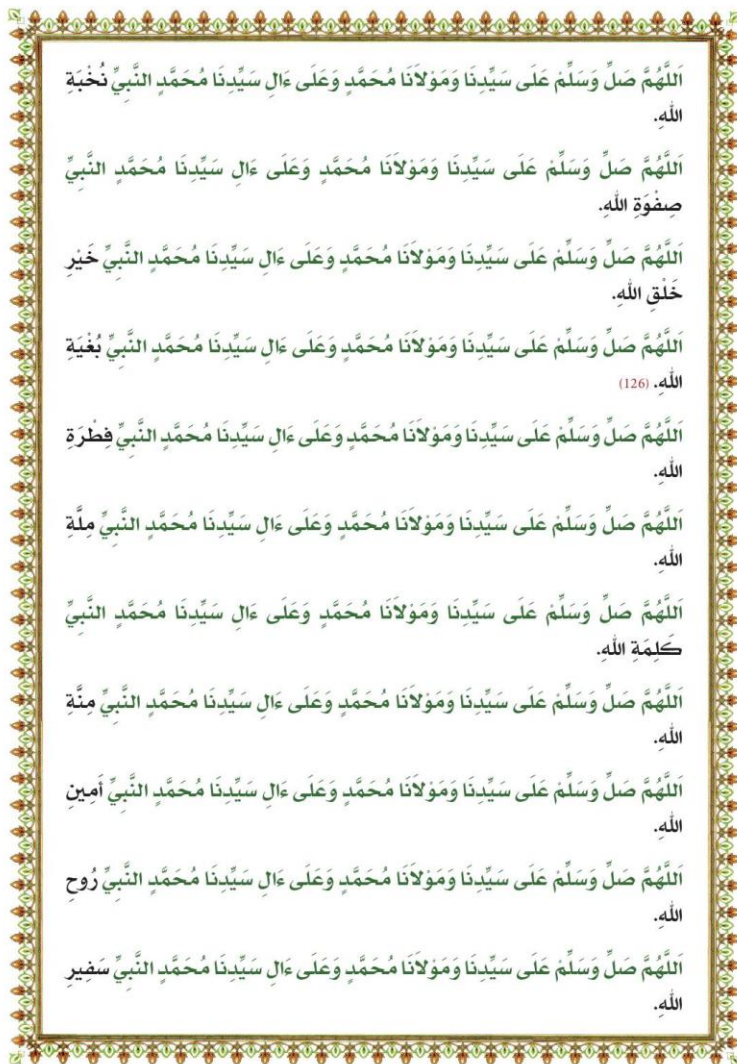 اَللَّهُمَّ صَلِّ وَسَلِّمْ عَلَى سَيِّدِنَا وَمَوْلَانَا مُحَمَّدٍ وَعَلَى ءَالِ سَيِّدِنَا مُحَمَّدٍ النَّبِيِّ نُخْبَةِ
اللهِ.
اَللَّهُمَّ صَلِّ وَسَلِّمْ عَلَى سَيِّدِنَا وَمَوْلَانَا مُحَمَّدٍ وَعَلَى ءَالِ سَيِّدِنَا مُحَمَّدٍ النَّبِيِّ
صِفْوَةِ اللهِ.
اَللَّهُمَّ صَلِّ وَسَلِّمْ عَلَى سَيِّدِنَا وَمَوْلَانَا مُحَمَّدٍ وَعَلَى ءَالِ سَيِّدِنَا مُحَمَّدٍ النَّبِيِّ خَيْرِ
خَلْقِ اللهِ.
اَللَّهُمَّ صَلِّ وَسَلِّمْ عَلَى سَيِّدِنَا وَمَوْلَانَا مُحَمَّدٍ وَعَلَى ءَالِ سَيِّدِنَا مُحَمَّدٍ النَّبِيِّ بُغْيَةِ
اللهِ. (126)
اَللَّهُمَّ صَلِّ وَسَلِّمْ عَلَى سَيِّدِنَا وَمَوْلَانَا مُحَمَّدٍ وَعَلَى ءَالِ سَيِّدِنَا مُحَمَّدٍ النَّبِيِّ فِطْرَةِ
اللهِ.
اَللَّهُمَّ صَلِّ وَسَلِّمْ عَلَى سَيِّدِنَا وَمَوْلَانَا مُحَمَّدٍ وَعَلَى ءَالِ سَيِّدِنَا مُحَمَّدٍ النَّبِيِّ مِلَّةِ
اللهِ.
اَللَّهُمَّ صَلِّ وَسَلِّمْ عَلَى سَيِّدِنَا وَمَوْلَانَا مُحَمَّدٍ وَعَلَى ءَالِ سَيِّدِنَا مُحَمَّدٍ النَّبِيِّ
كَلِمَةِ اللهِ.
اَللَّهُمَّ صَلِّ وَسَلِّمْ عَلَى سَيِّدِنَا وَمَوْلَانَا مُحَمَّدٍ وَعَلَى ءَالِ سَيِّدِنَا مُحَمَّدٍ النَّبِيِّ مِنَّةِ
اللهِ.
اَللَّهُمَّ صَلِّ وَسَلِّمْ عَلَى سَيِّدِنَا وَمَوْلَانَا مُحَمَّدٍ وَعَلَى ءَالِ سَيِّدِنَا مُحَمَّدٍ النَّبِيِّ أَمِينِ
اللهِ.
اَللَّهُمَّ صَلِّ وَسَلِّمْ عَلَى سَيِّدِنَا وَمَوْلَانَا مُحَمَّدٍ وَعَلَى ءَالِ سَيِّدِنَا مُحَمَّدٍ النَّبِيِّ رُوحِ
اللهِ.
اَللَّهُمَّ صَلِّ وَسَلِّمْ عَلَى سَيِّدِنَا وَمَوْلَانَا مُحَمَّدٍ وَعَلَى ءَالِ سَيِّدِنَا مُحَمَّدٍ النَّبِيِّ سَفِيرِ
اللهِ.